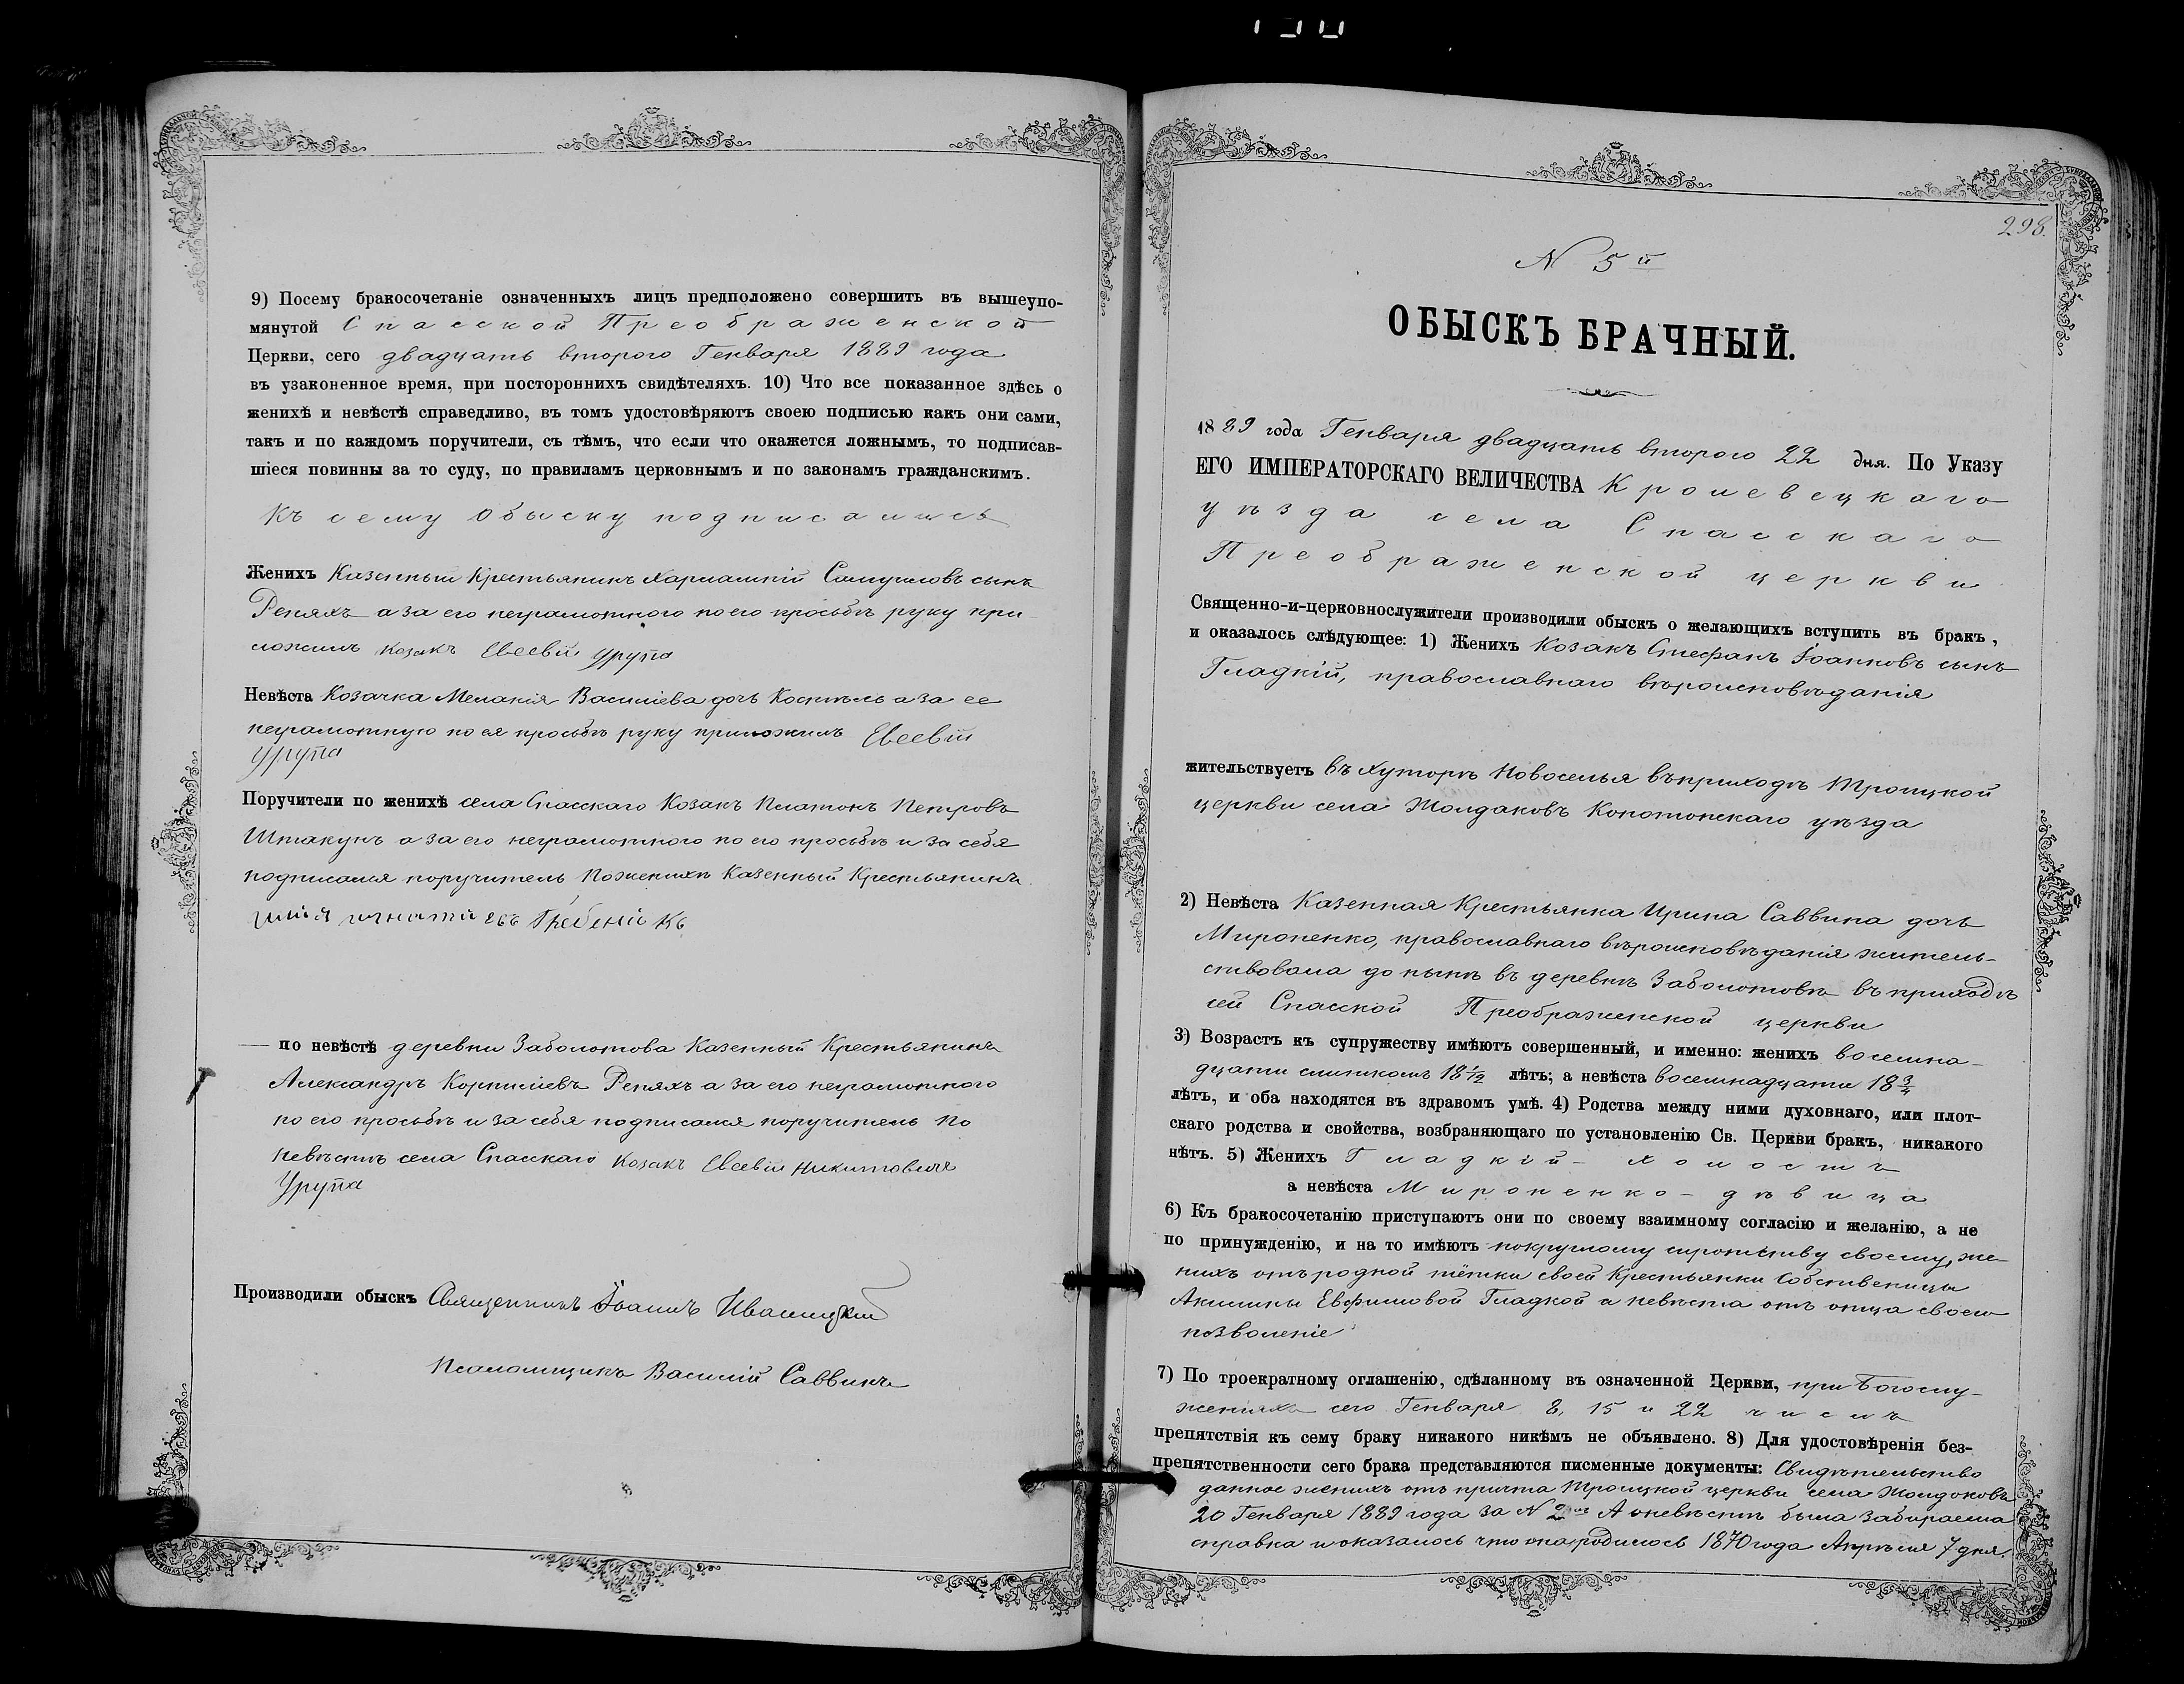 9) Посему бракосочетаніе означенныхъ лицъ предположено совершить въ вышеупо-
мянутой Спасской Преображенской
Церкви, сего двадцать второго Генваря 1889 года
въ узаконенное время, при постороннихъ свидѣтеляхъ. 10) Что все показанное здѣсь о
женихѣ и невѣстѣ справедливо, въ томъ удостовѣряютъ своею подписью какъ они сами,
такъ и по каждомъ поручители, съ тѣмъ, что если что окажется ложнымъ, то подписав-
шіеся повинны за то суду, по правиламъ церковнымъ и по законамъ гражданскимъ.
Къ сему Обыску подписались
Женихъ Казенный Крестьянинъ Харлампій Самуиловъ сынъ
Репяхъ а за его неграмотного по его прозьбѣ руку при
ложилъ козакъ Евсевій Урупа
Невѣста Козачка Меланія Василіева дочь Костѣль а за ее
неграмотную по ея прозьбѣ руку приложилъ Евсевій
Урупа
Поручители по женихѣ села Спасскаго Козакъ Платонъ Петровъ
Штакунъ а за его неграмотного по его прозьбѣ и за себя
подписался поручитель по женихѣ Казенный Крестьянинъ
по невѣстѣ деревни Заболотова Казенный Крестьянинъ
Александръ Корниліевъ Репяхъ а за его неграмотного
по его прозьбѣ и за себя подписался поручитель по
невѣстѣ села Спасскаго Козакъ Евсевій Никитовичъ
Урупа
Производили обыскъ Священникъ Іоаннъ Ивасицкій
Псаломщикъ Василій Саввинъ
298.
N 5й
ОБЫСКЪ БРАЧНЫЙ.
1889 года Генваря двадцать второго 22 дня. По Указу
ЕГО ИМПЕРАТОРСКАГО ВЕЛИЧЕСТВА Кролевецкаго
уѣзда села Спасскаго
Преображенской церкви
Священно-и-церковнослужители производили обыскъ о желающихъ вступить въ бракъ,
и оказалось слѣдующее: 1) Женихъ Козакъ Стефанъ Іоанновъ сынъ
Гладкій, православнаго вѣроисповѣданія
жительствуетъ въ хуторѣ Новоселья въ приходѣ Троицкой
церкви села Жолдаковъ Конотопскаго уѣзда
2) Невѣста Казенная Крестьянка Ирина Саввина дочь
Мироненко, православнаго вѣроисповѣданія житель-
ствовала до нынѣ въ деревнѣ Заболотовѣ въ приходѣ
сей Спасской Преображенской церкви
3) Возрастъ къ супружеству имѣютъ совершенный, и именно: женихъ восемна-
дцати слишкомъ 18 1/2 лѣтъ; а невѣста восемнадцати 18 3/4
лѣтъ, и оба находятся въ здравомъ умѣ. 4) Родства между ними духовнаго, или плот-
скаго родства и свойства, возбраняющаго по установленію Св. Церкви бракъ, никакого
нѣтъ. 5) Женихъ Гладкій – холостъ
а невѣста Мироненко – дѣвица
6) Къ бракосочетанію приступаютъ они по своему взаимному согласію и желанію, а не
по принужденію, и на то имѣютъ по круглому сиротству своему, же-
нихъ отъ родной тётки своей Крестьянки Собственицы
Акилины Евфимовой Гладкой а невѣста отъ отца своего
позволеніе
7) По троекратному оглашенію, сдѣланному въ означенной Церкви, при Богослу-
женіяхъ сего Генваря 8, 15 и 22 числъ
препятствія къ сему браку никакого никѣмъ не объявлено. 8) Для удостовѣренія без-
препятственности сего брака представляются писменные документы: Свидѣтельство
данное женихъ отъ причта Троицкой церкви села Жолдоковъ
20 Генваря 1889 года за N 2 А о невѣстѣ была забираема
справка и оказалось что она родилось 1870 года Апрѣля 7 дня.